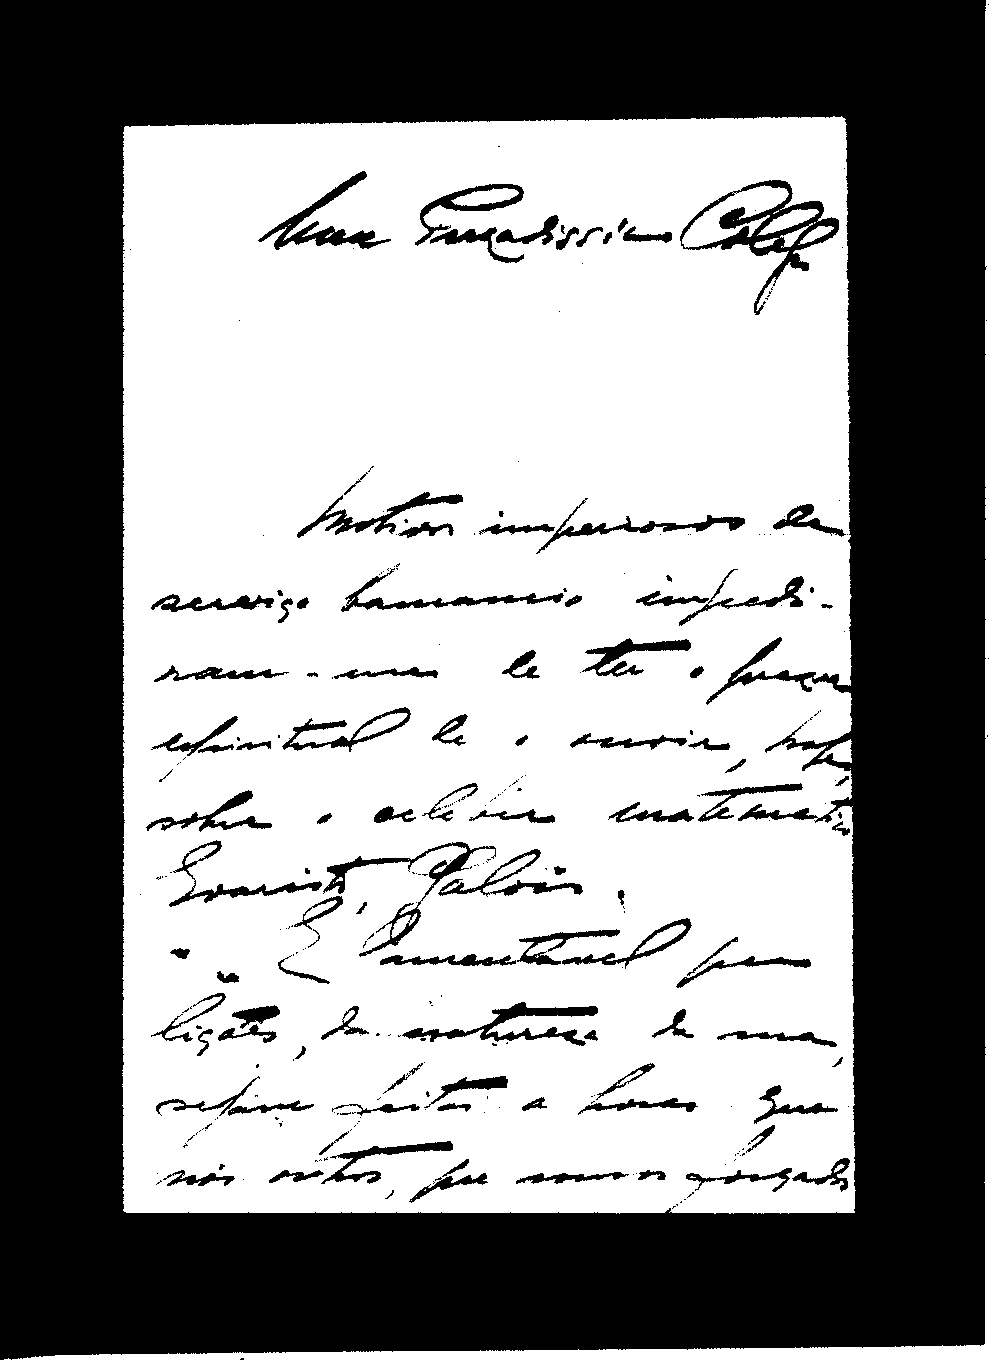 Meu Prezadissimo Colega
Motivos imperiosos de
serviço bancario impedi-
ram-me de ter o prazer
espiritual de o ouvir, hoje,
sobre o celebre matematico
Evaristo Galois.
E' lamentavel que
lições, da natureza da sua,
sejam feitas a horas que
nós outros, que somos forçados